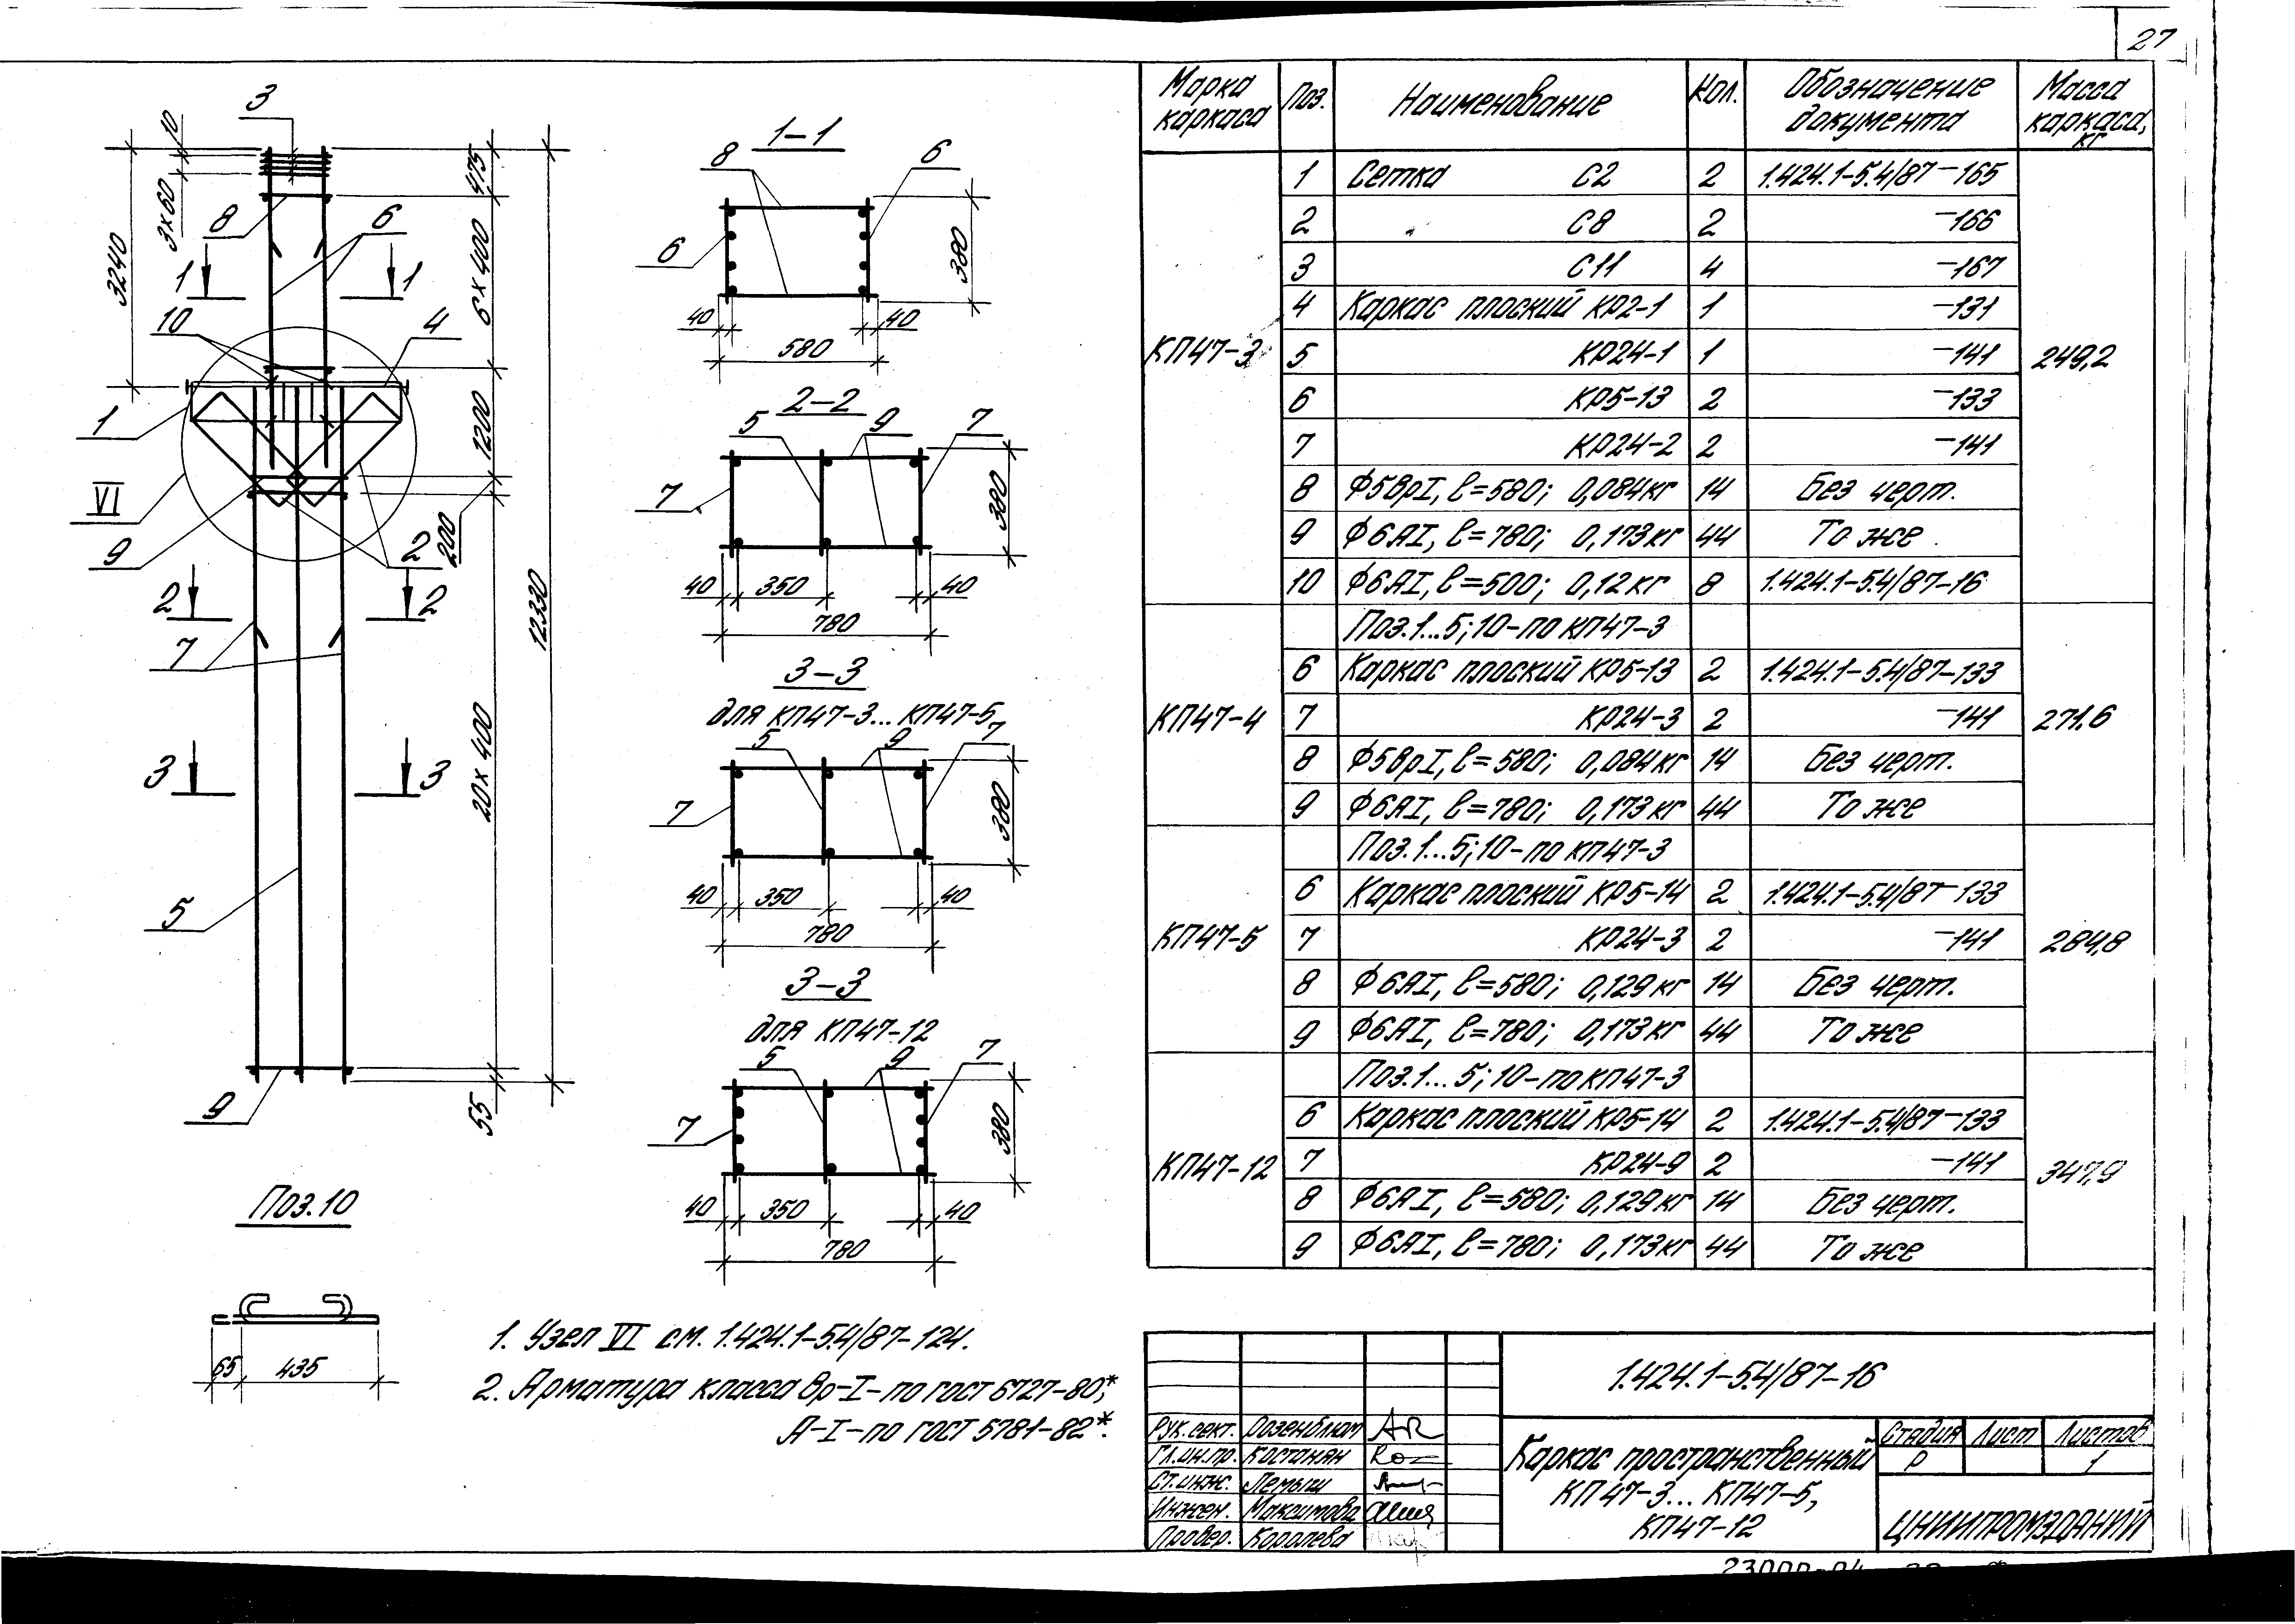 27
3
10
3×60
3240
475
8
6
6×400
1
1
10
4
1
1200
VI
9
2
200
2
2
7
12330
20×400
3
3
5
9
55
1–1
8
6
6
380
40
40
580
2–2
5
9
7
7
380
40
350
40
780
3–3
для КП47-3... КП47-5
5
9
7
7
380
40
350
40
780
3–3
для КП47-12
5
9
7
7
380
40
350
40
780
Поз.10
65
435
1. Узел VI см. 1.424.1-5.4/87-124.
2. Арматура класса Вр-I-по ГОСТ 6727-80,*
А-I-по ГОСТ 5781-82*.
Марка каркаса Поз. Наименование Кол. Обозначение документа Масса каркаса, кг
КП47-3 249,2
1 Сетка С2 2 1.424.1-5.4/87-165
2 С8 2 -166
3 С11 4 -167
4 Каркас плоский КР2-1 1 -131
5 КР24-1 1 -141
6 КР5-13 2 -133
7 КР24-2 2 -141
8 Ф5ВрI, l=580; 0,084кг 14 Без черт.
9 Ф6АI, l=780; 0,173кг 44 То же
10 Ф6АI, l=500; 0,12кг 8 1.424.1-5.4/87-16
КП47-4 271,6
Поз.1...5;10-по КП47-3
6 Каркас плоский КР5-13 2 1.424.1-5.4/87-133
7 КР24-3 2 -141
8 Ф5ВрI, l=580; 0,084кг 14 Без черт.
9 Ф6АI, l=780; 0,173кг 44 То же
КП47-5 284,8
Поз.1...5;10-по КП47-3
6 Каркас плоский КР5-14 2 1.424.1-5.4/87-133
7 КР24-3 2 -141
8 Ф6АI, l=580; 0,129кг 14 Без черт.
9 Ф6АI, l=780; 0,173кг 44 То же
КП47-12 347,9
Поз.1...5;10-по КП47-3
6 Каркас плоский КР5-14 2 1.424.1-5.4/87-133
7 КР24-9 2 -141
8 Ф6АI, l=580; 0,129кг 14 Без черт.
9 Ф6АI, l=780; 0,173кг 44 То же
1.424.1-5.4/87-16
Рук.сект. Розенблюм
Гл.ин.пр. Костанян
Ст.инж. Лемыш
Инжен. Максимова
Провер. Королева
Каркас пространственный
КП47-3... КП47-5,
КП47-12
Стадия Лист Листов
Р 1
ЦНИИПРОМЗДАНИЙ